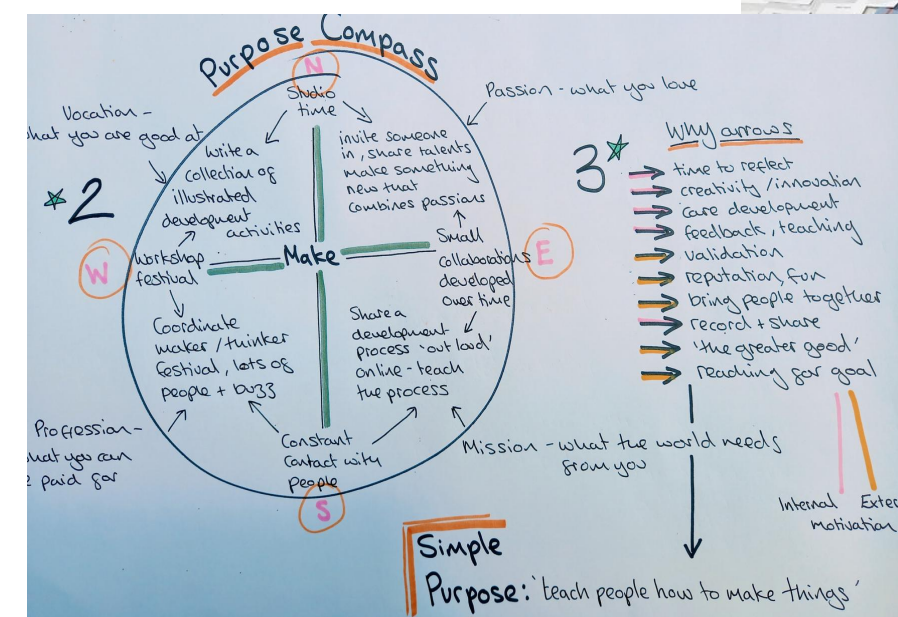 Purpose Compass
N
Studio
time
Vocation -
hat you are good at
Passion - what you love
*2
write a
collection of
illustrated
development
activities
invite someone
in, share talents
make something
new that
combines passions
W
workshop
festival
Make
Small
collaborations
developed
over time
E
Coordinate
maker/thinker
festival, lots of
people + buzz
Share a
development
process 'out loud'
online - teach
the process
Profession -
hat you can
e paid for
Constant
Contact with
people
S
Mission - what the world needs
from you
3*
Why arrows
time to reflect
creativity/innovation
care development
feedback, teaching
validation
reputation, fun
bring people together
record + share
'the greater good'
reaching for goal
Internal Exter
motivation
Simple
Purpose: 'teach people how to make things'